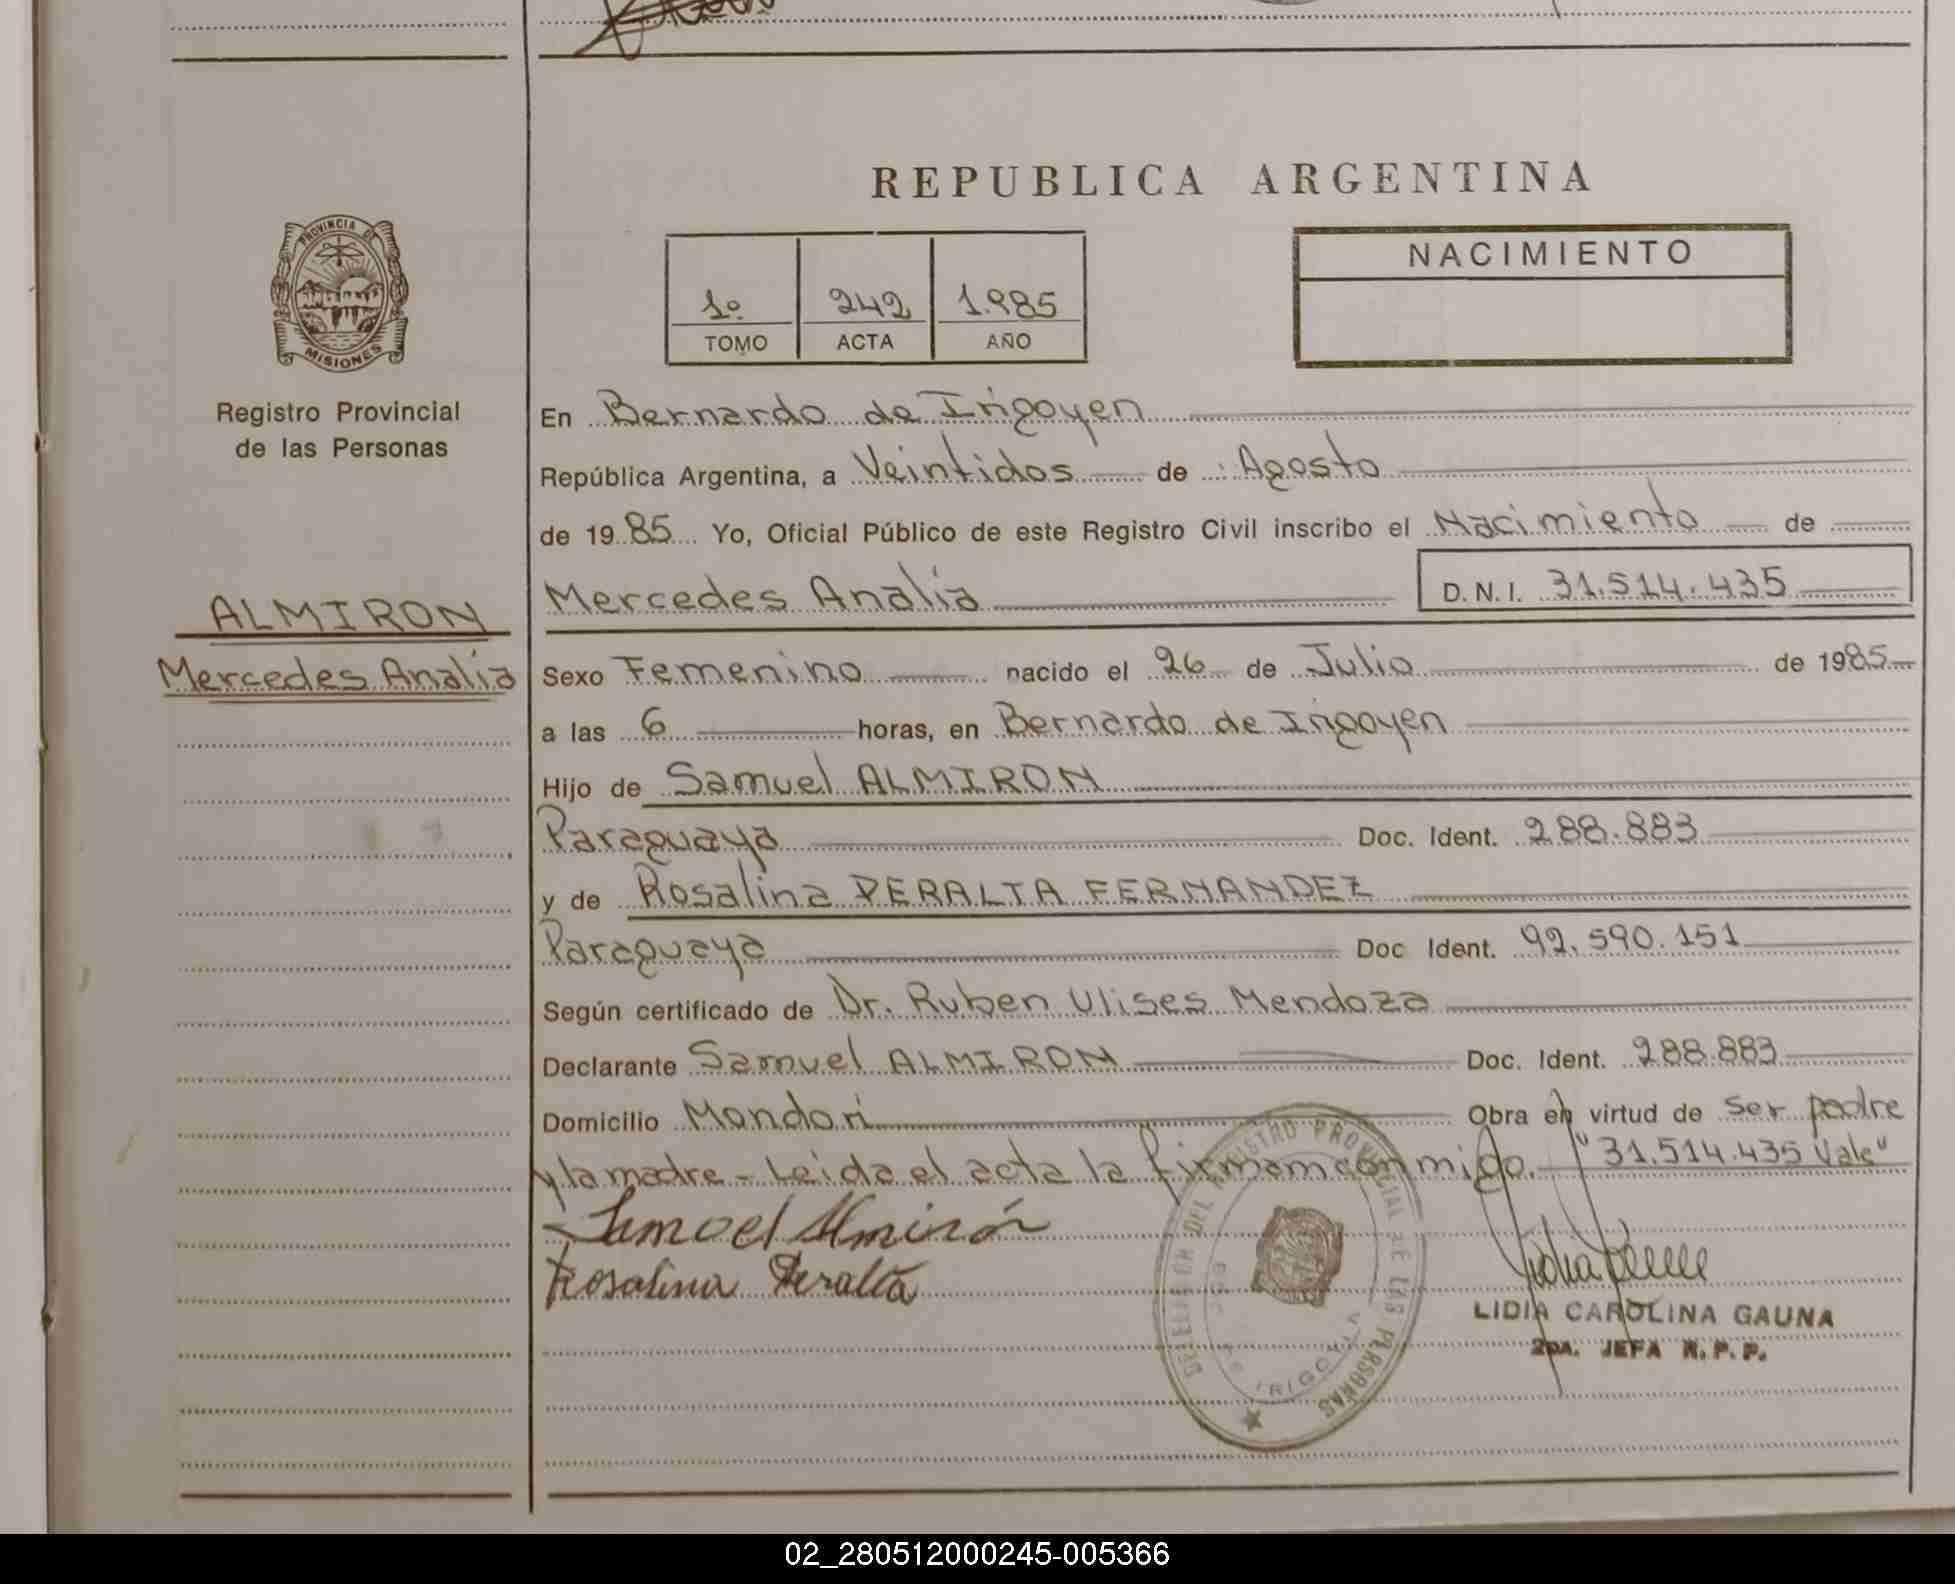 REPUBLICA ARGENTINA
PROVINCIA DE
MISIONES
Registro Provincial
de las Personas
1º 242 1.985
TOMO ACTA AÑO
NACIMIENTO
En Bernardo de Irigoyen
República Argentina, a Veintidos de Agosto
de 1985 Yo, Oficial Público de este Registro Civil inscribo el Nacimiento de
Mercedes Analía D.N.I. 31.514.435
ALMIRON
Mercedes Analía
Sexo Femenino nacido el 26 de Julio de 1985
a las 6 horas, en Bernardo de Irigoyen
Hijo de Samuel ALMIRON
Paraguaya Doc. Ident. 288.883
y de Rosalina PERALTA FERNANDEZ
Paraguaya Doc Ident. 92.590.151
Según certificado de Dr. Ruben Ulises Mendoza
Declarante Samuel ALMIRON Doc. Ident. 288.883
Domicilio Mondorí Obra en virtud de ser padre
y la madre - Leida el acta la firmam conmigo. "31.514.435 Vale"
Samoel Almirón
Rosalina Peralta
DEL REGISTRO PROVINCIAL DE LAS PERSONAS
IRIGOYEN
LIDIA CAROLINA GAUNA
2DA. JEFA R.P.P.
02_280512000245-005366